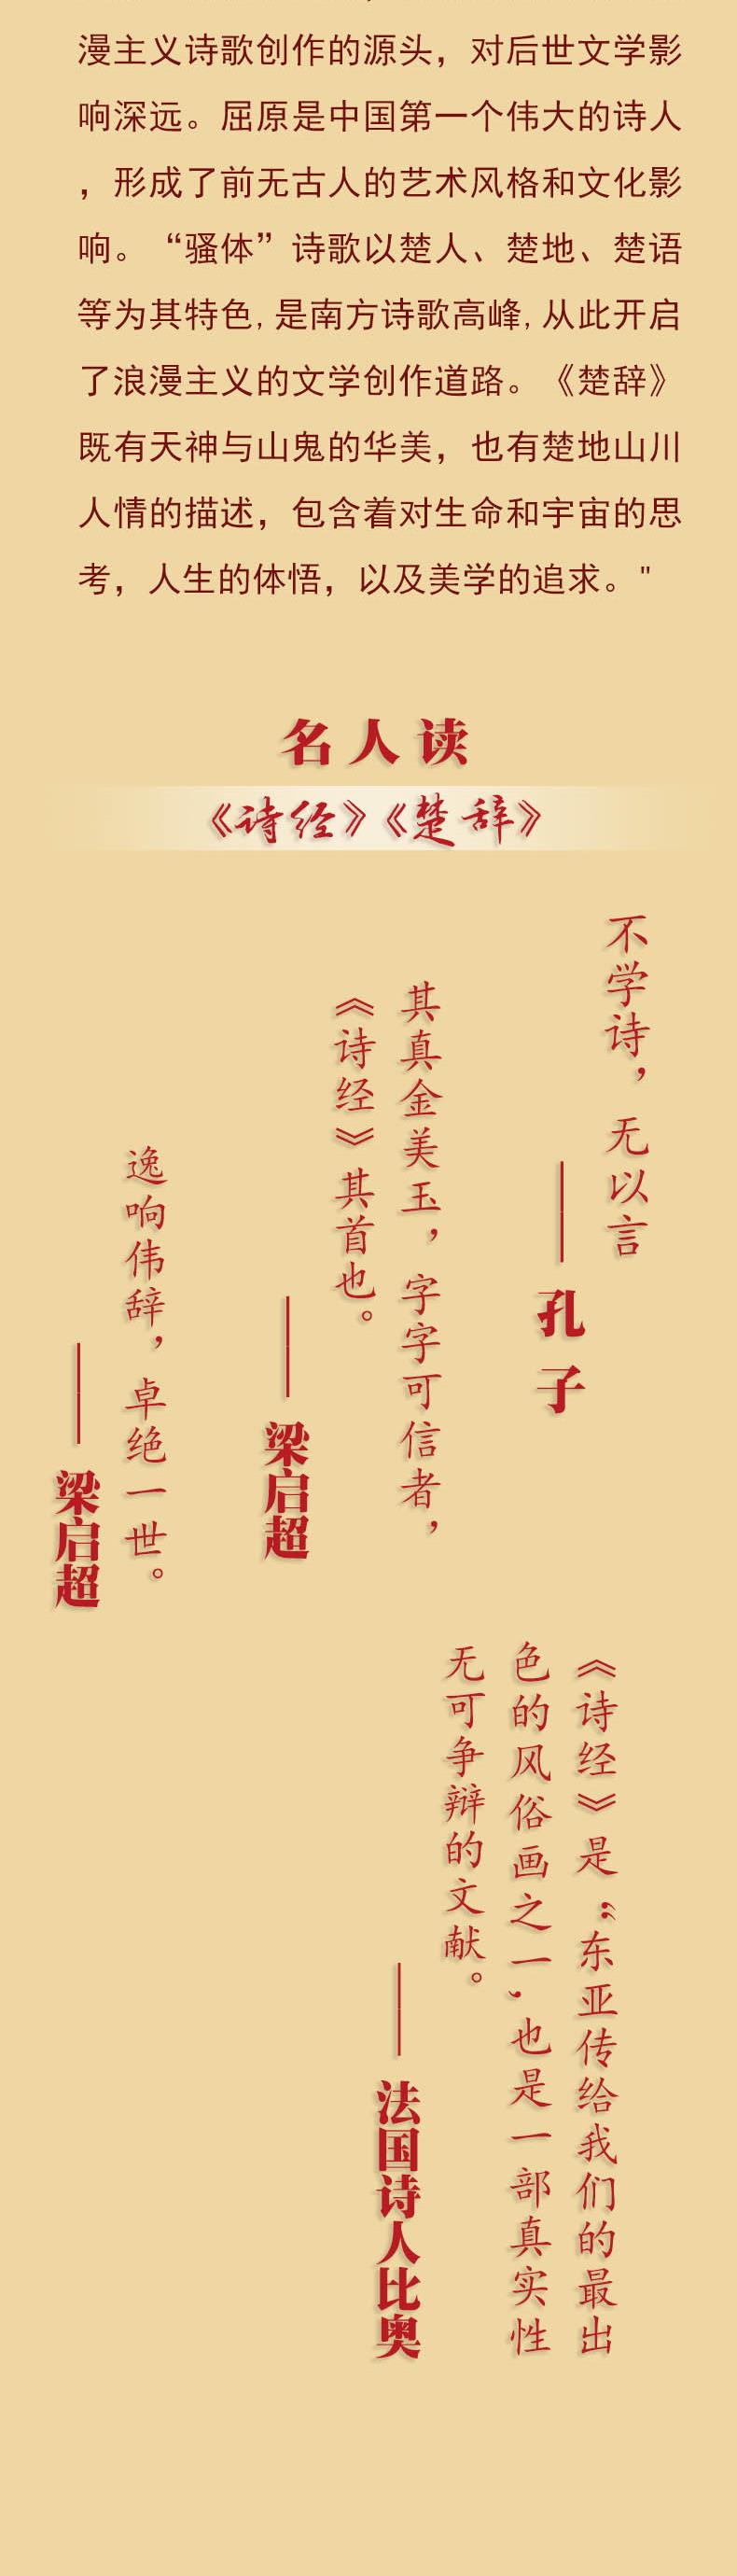 漫主义诗歌创作的源头，对后世文学影
响深远。屈原是中国第一个伟大的诗人
，形成了前无古人的艺术风格和文化影
响。“骚体”诗歌以楚人、楚地、楚语
等为其特色,是南方诗歌高峰,从此开启
了浪漫主义的文学创作道路。《楚辞》
既有天神与山鬼的华美，也有楚地山川
人情的描述，包含着对生命和宇宙的思
考，人生的体悟，以及美学的追求。"
名人读
《诗经》《楚辞》
不学诗，无以言
——孔子
其真金美玉，字字可信者，
《诗经》其首也。
——梁启超
逸响伟辞，卓绝一世。
——梁启超
《诗经》是“东亚传给我们的最出
色的风俗画之一，也是一部真实性
无可争辩的文献。
——法国诗人比奥